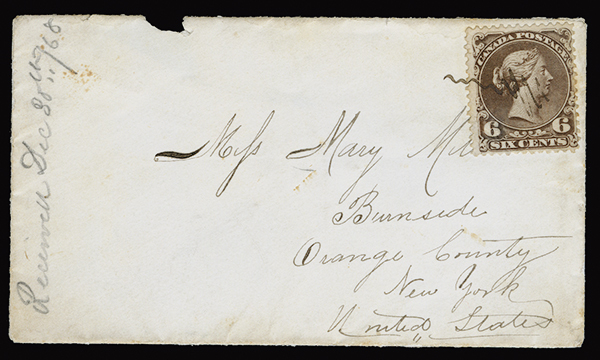 Received Dec 30th "/68
CANADA POSTAGE
6 6
SIX CENTS
Miss Mary
Burnside
Orange County
New York
United States